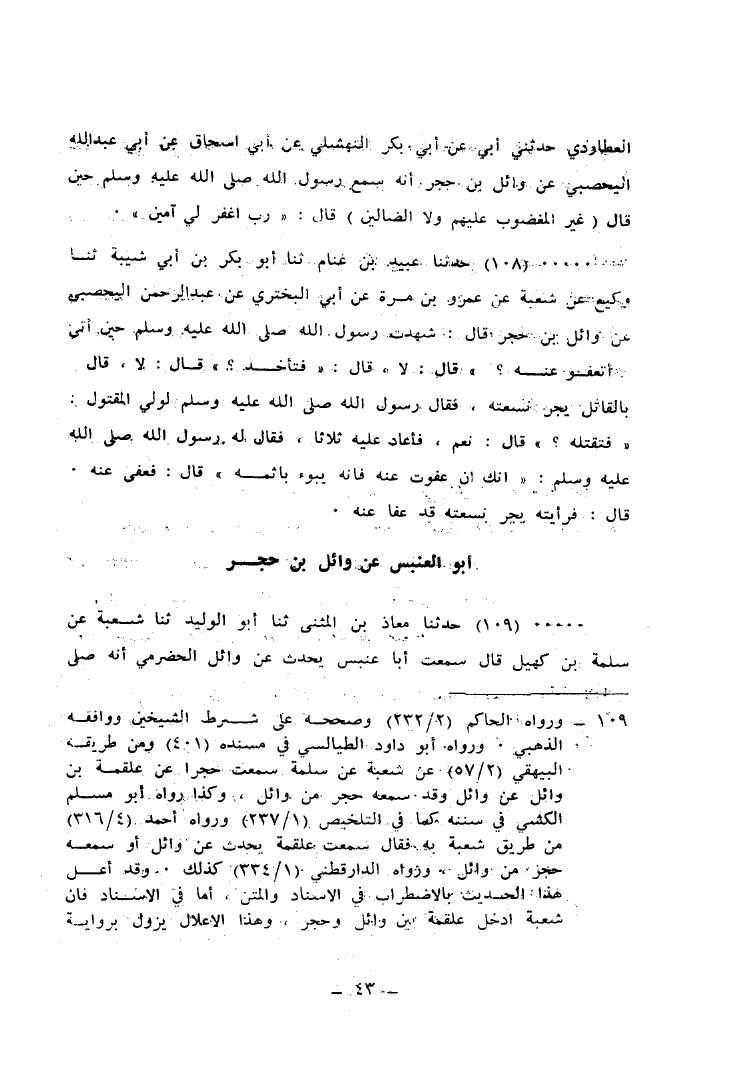 العطاردي حدثني أبي عن أبي بكر النهشلي عن أبي اسحاق عن أبي عبدالله
اليحصبي عن وائل بن حجر أنه سمع رسول الله صلى الله عليه وسلم حين
قال ( غير المغضوب عليهم ولا الضالين ) قال : « رب اغفر لي آمين » ٠
٠٠٠٠٠ (١٠٨) حدثنا عبيد بن غنام ثنا أبو بكر بن أبي شيبة ثنا
وكيع عن شعبة عن عمرو بن مرة عن أبي البختري عن عبدالرحمن اليحصبي
عن وائل بن حجر قال : شهدت رسول الله صلى الله عليه وسلم حين أتي
بالقاتل يجر نسعته ، فقال رسول الله صلى الله عليه وسلم لولي المقتول :
أتعفو عنه ؟ » قال : لا » قال : « فتأخذ ؟ » قال : لا ، قال
« فتقتله ؟ » قال : نعم ، فأعاد عليه ثلاثا ، فقال له رسول الله صلى الله
عليه وسلم : « انك ان عفوت عنه فانه يبوء باثمه » قال : فعفى عنه ٠
قال : فرأيته يجر نسعته قد عفا عنه ٠
أبو العنبس عن وائل بن حجر
٠٠٠٠٠ (١٠٩) حدثنا معاذ بن المثنى ثنا أبو الوليد ثنا شعبة عن
سلمة بن كهيل قال سمعت أبا عنبس يحدث عن وائل الحضرمي أنه صلى
١٠٩ – ورواه الحاكم (٢٣٢/٢) وصححه على شرط الشيخين ووافقه
الذهبي ٠ ورواه أبو داود الطيالسي في مسنده (٤٠١) ومن طريقه
البيهقي (٥٧/٢) عن شعبة عن سلمة سمعت حجرا عن علقمة بن
وائل عن وائل وقد سمعه حجر من وائل ، وكذا رواه أبو مسلم
الكشي في سننه كما في التلخيص (٢٣٧/١) ورواه أحمد (٣١٦/٤)
من طريق شعبة به فقال سمعت علقمة يحدث عن وائل أو سمعه
حجر من وائل ، ورواه الدارقطني (٣٣٤/١) كذلك ٠ وقد أعل
هذا الحديث بالاضطراب في الاسناد والمتن ، أما في الاسناد فان
شعبة ادخل علقمة بين وائل وحجر ، وهذا الاعلال يزول برواية
– ٤٣ –